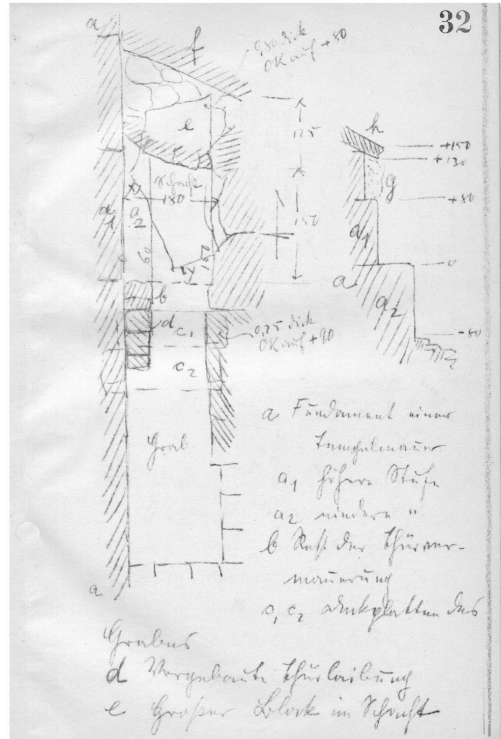 32
a
f
0,30 dick
OK auf +80
e
h
+150
+130
125
Schacht
180
g
+80
a1
a2
150
a1
60
160
0
a
a2
b
d
c1
0,25 dick
OK auf +90
-80
c2
a Fundament einer
Grab
Tempelmauer
a1 höhere Stufe
a2 niedere "
b Rest der Thürver-
mauerung
a
c1 c2 Deckplatten des
Grabes
d Vorgebaute Thürlaibung
e Großer Block im Schacht